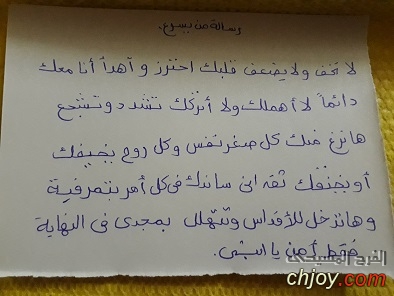 رسالة من يسوع.
لا تخف ولا يضعف قلبك احترز و آهدأ أنا معك
دائماً لا أهملك ولا أتركك تشدد و تشجع
هانزع منك كل صغر نفس وكل روح يخيفك
أو يخنقك ثقه انى ساندك فى كل أمر بتمر فية
و هاتدخل للأقداس وتتهلل بمجدى فى النهاية
فقط أمن يا ابنى.
الفرح المسيحى
chjoy.com